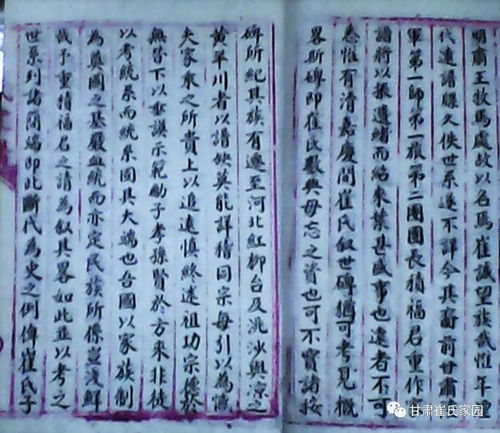 明肅王牧馬處故以名焉崔謙望族哉惟年
代遠譜牒久佚世系遂不詳今其裔前甘肅
軍第一師第一旅第二團團長積福君重作
譜將以振遺緒而紹來葉甚盛事也遠者不可
悉惟有清嘉慶間崔氏叙世碑猶可考見概
畧斯碑即崔氏數典毋忘之資也可不寶諸按
碑所紀其族有遷至河北紅柳台及洮沙與涼之
黃羊川者以譜缺莫能詳稽同宗每引以為憾
夫家乘之所貴上以追遠慎終述祖功宗德於
無替下以垂謨示範勵子孝孫賢於方來非徒
以考統系而統系固其大端也吾國以家族制
為奠國之基嚴血統而亦定民族所係豈淺鮮
哉予重積福君之請為叙其畧如此並以考之
世系列諸簡端即此斷代為史之例俾崔氏子
甘肃崔氏家园